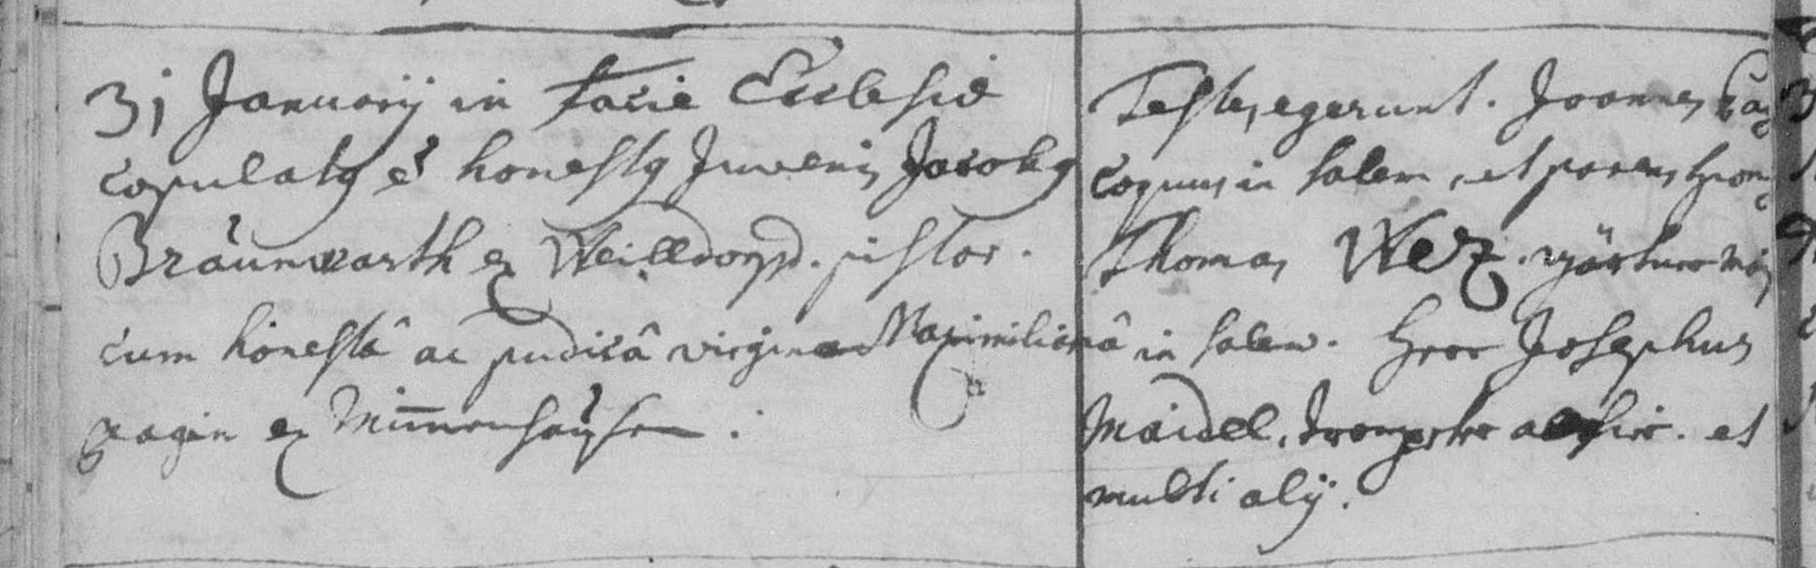 31 Januarij in facie Ecclesiæ
copulatq ē honestq Juvenis Jacobq
Braunwarth ex Weilldorff. pistor.
cum honestâ ac pudicâ virgine Maximilianâ
ex Mim̄enhausen.
Testes egerunt. Joannes
coquus in Salem, et
Thomas Wez.
in Salem. Josephus
Maidel, et
multi alij.